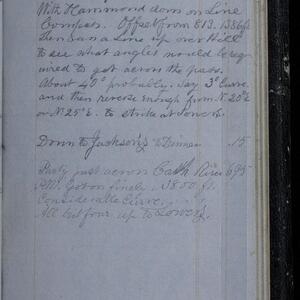 With Hammond down on Line
Compass. Offset from 813. 1386 ft.
Then ran a Line up over Hill
to see what angles would be req
uired to get across the pass.
About 40° probably. Say 3° Curve
and then reverse enough from N. 20° E
or N. 25° E. to strike at
Down to Jackson's to Dinner .75
Party just across Cath River 695
P.M. Got on finely. 3800 ft.
Considerable Curve.
All but four up to